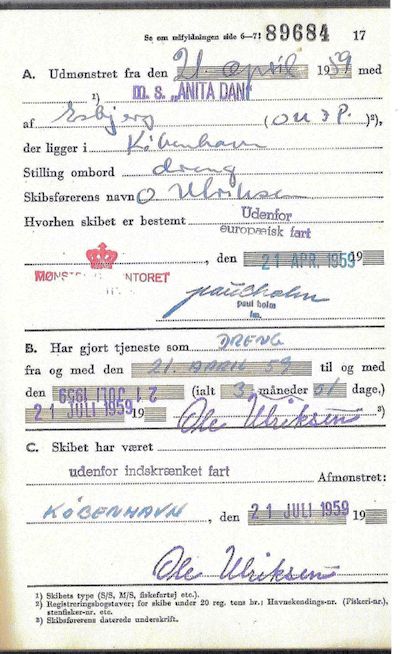 Se om udfyldningen side 6—7! 89684 17
A. Udmønstret fra den 21. april 1959 med
1) M. S. „ANITA DAN"
af Esbjerg (OU P.)2),
der ligger i København
Stilling ombord dreng
Skibsførerens navn O Ulriksen
Hvorhen skibet er bestemt Udenfor
europæisk fart
, den 21 APR. 1959 19
MØNST NTORET
paul holm
paul holm
fm.
B. Har gjort tjeneste som DRENG
fra og med den 21. APRIL 59 til og med
den 21 JULI 1959 (ialt 3 måneder 01 dage.)
21 JULI 1959 19 Ole Ulriksen 3)
C. Skibet har været
udenfor indskrænket fart
Afmønstret:
KÖBENHAVN, den 21 JULI 1959 19
Ole Ulriksen
1) Skibets type (S/S, M/S, fiskefartøj etc.).
2) Registreringsbogstaver; for skibe under 20 reg. tons br.: Havnekendings-nr. (Fiskeri-nr.), stenfisker-nr. etc.
3) Skibsførerens daterede underskrift.